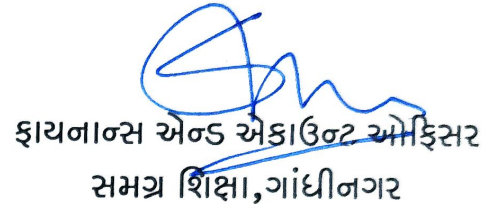 ફાયનાન્સ એન્ડ એકાઉન્ટ ઓફિસર
સમગ્ર શિક્ષા,ગાંધીનગર